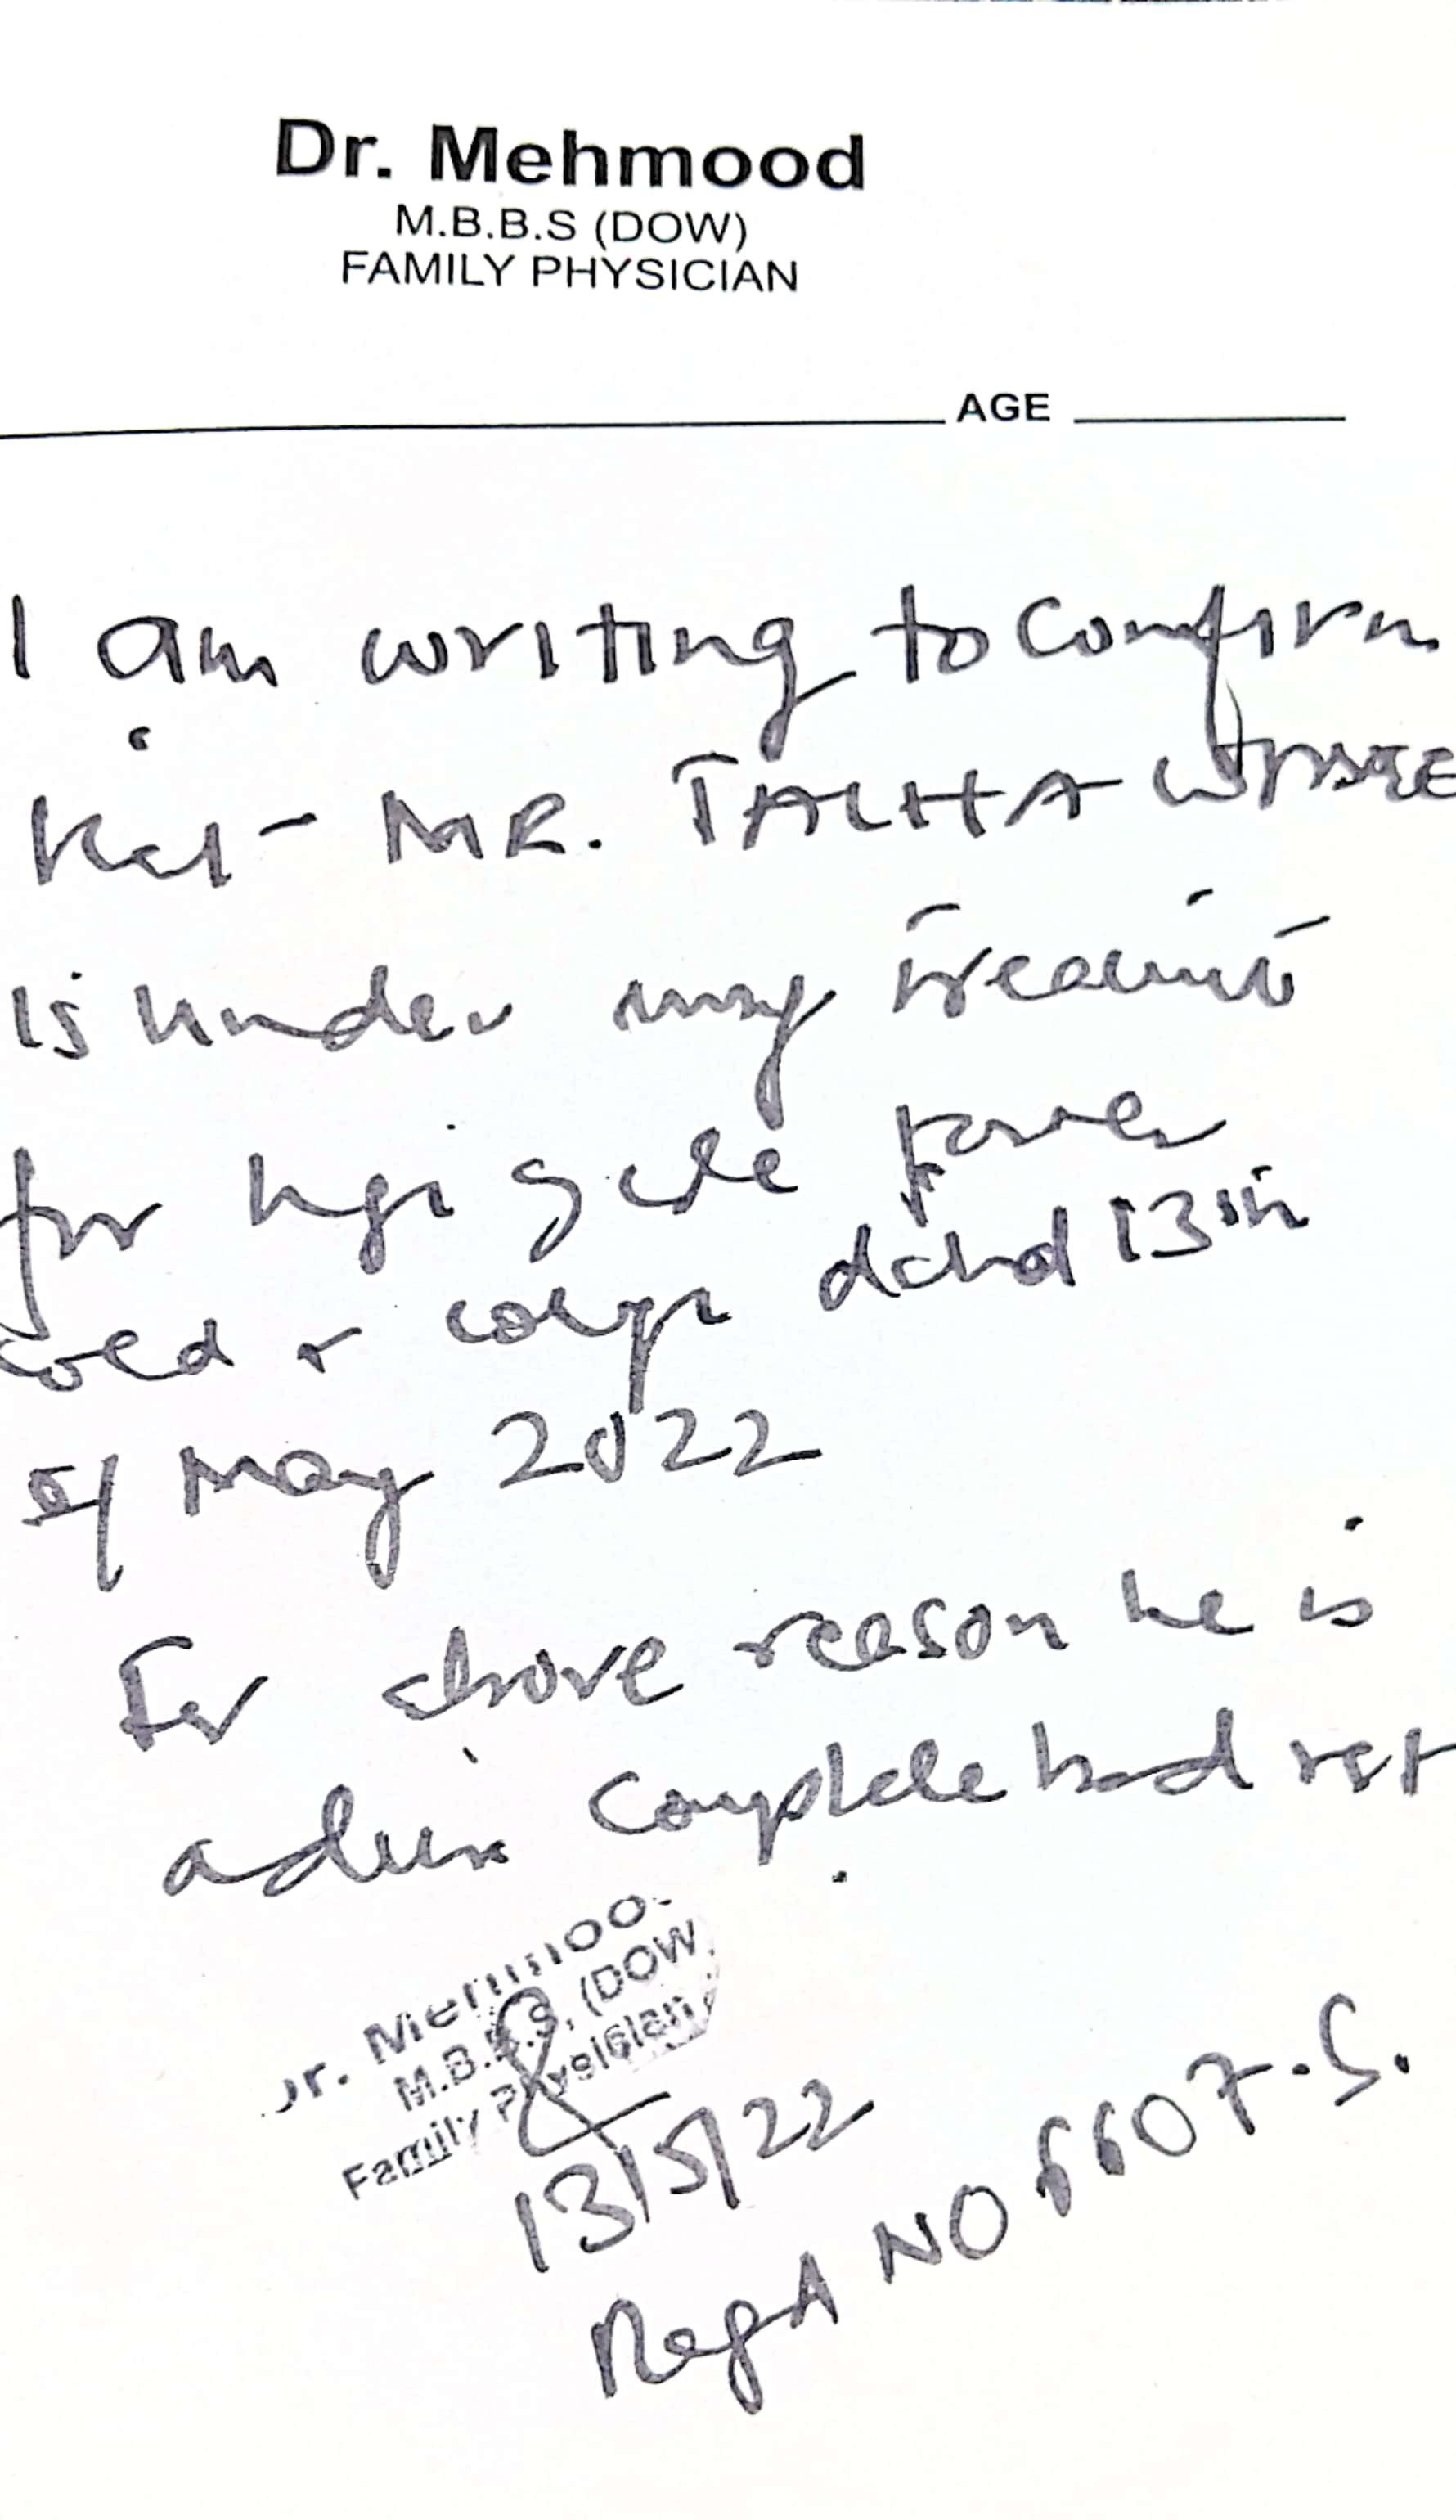 Dr. Mehmood
M.B.B.S (DOW)
FAMILY PHYSICIAN
AGE
I am writing to confirm
MR. TALHA
is under my
for high fever
cold + dated 13th
of May 2022
For above reason he is
complete bed rest
M.B.B.S, (DOW
Family Physician
13/5/22
Regd NO 6607-S.